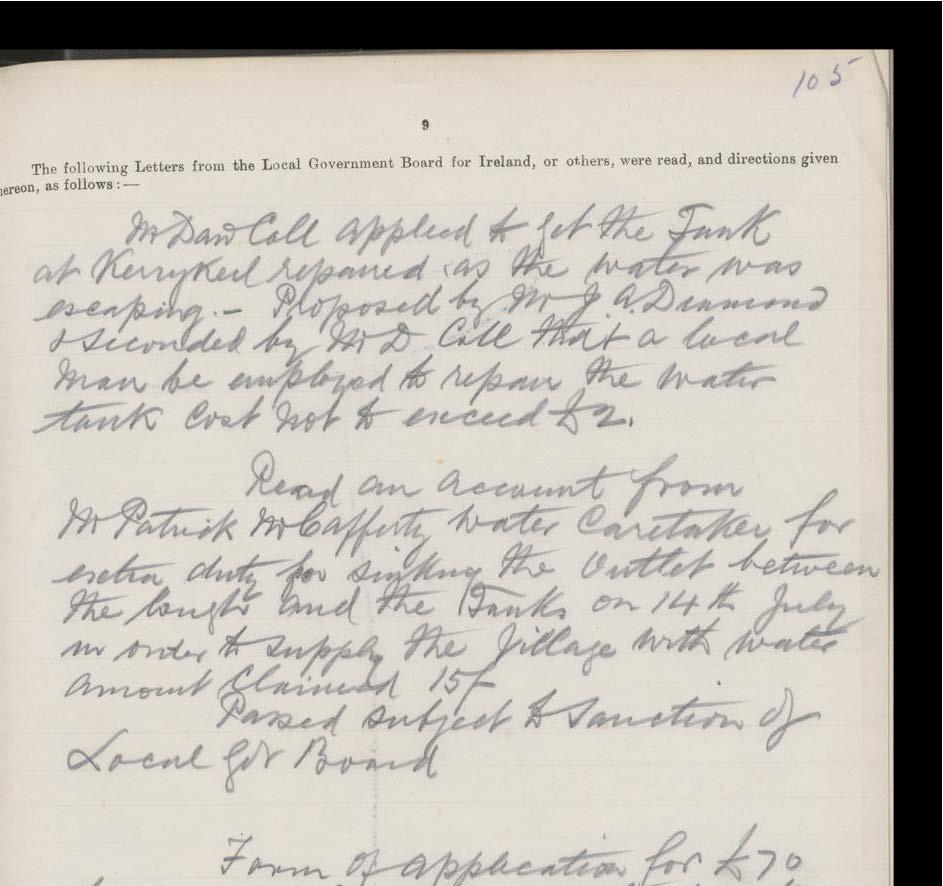 105
9
The following Letters from the Local Government Board for Ireland, or others, were read, and directions given
hereon, as follows :—
Mr Dan Coll applied to get the Tank
at Kerrykeel repaired as the water was
escaping. – Proposed by Mr J. A. Diamond
& Seconded by Mr D Coll that a local
man be employed to repair the water
tank Cost not to exceed £2.
Read an account from
Mr Patrick McCafferty Water Caretaker for
extra duty for sinking the Outlet between
the lough and the Tanks on 14th July
in order to supply the Village with water
amount Claimed 15/-
Passed subject to Sanction of
Local Gvt Board
Form of application for £70